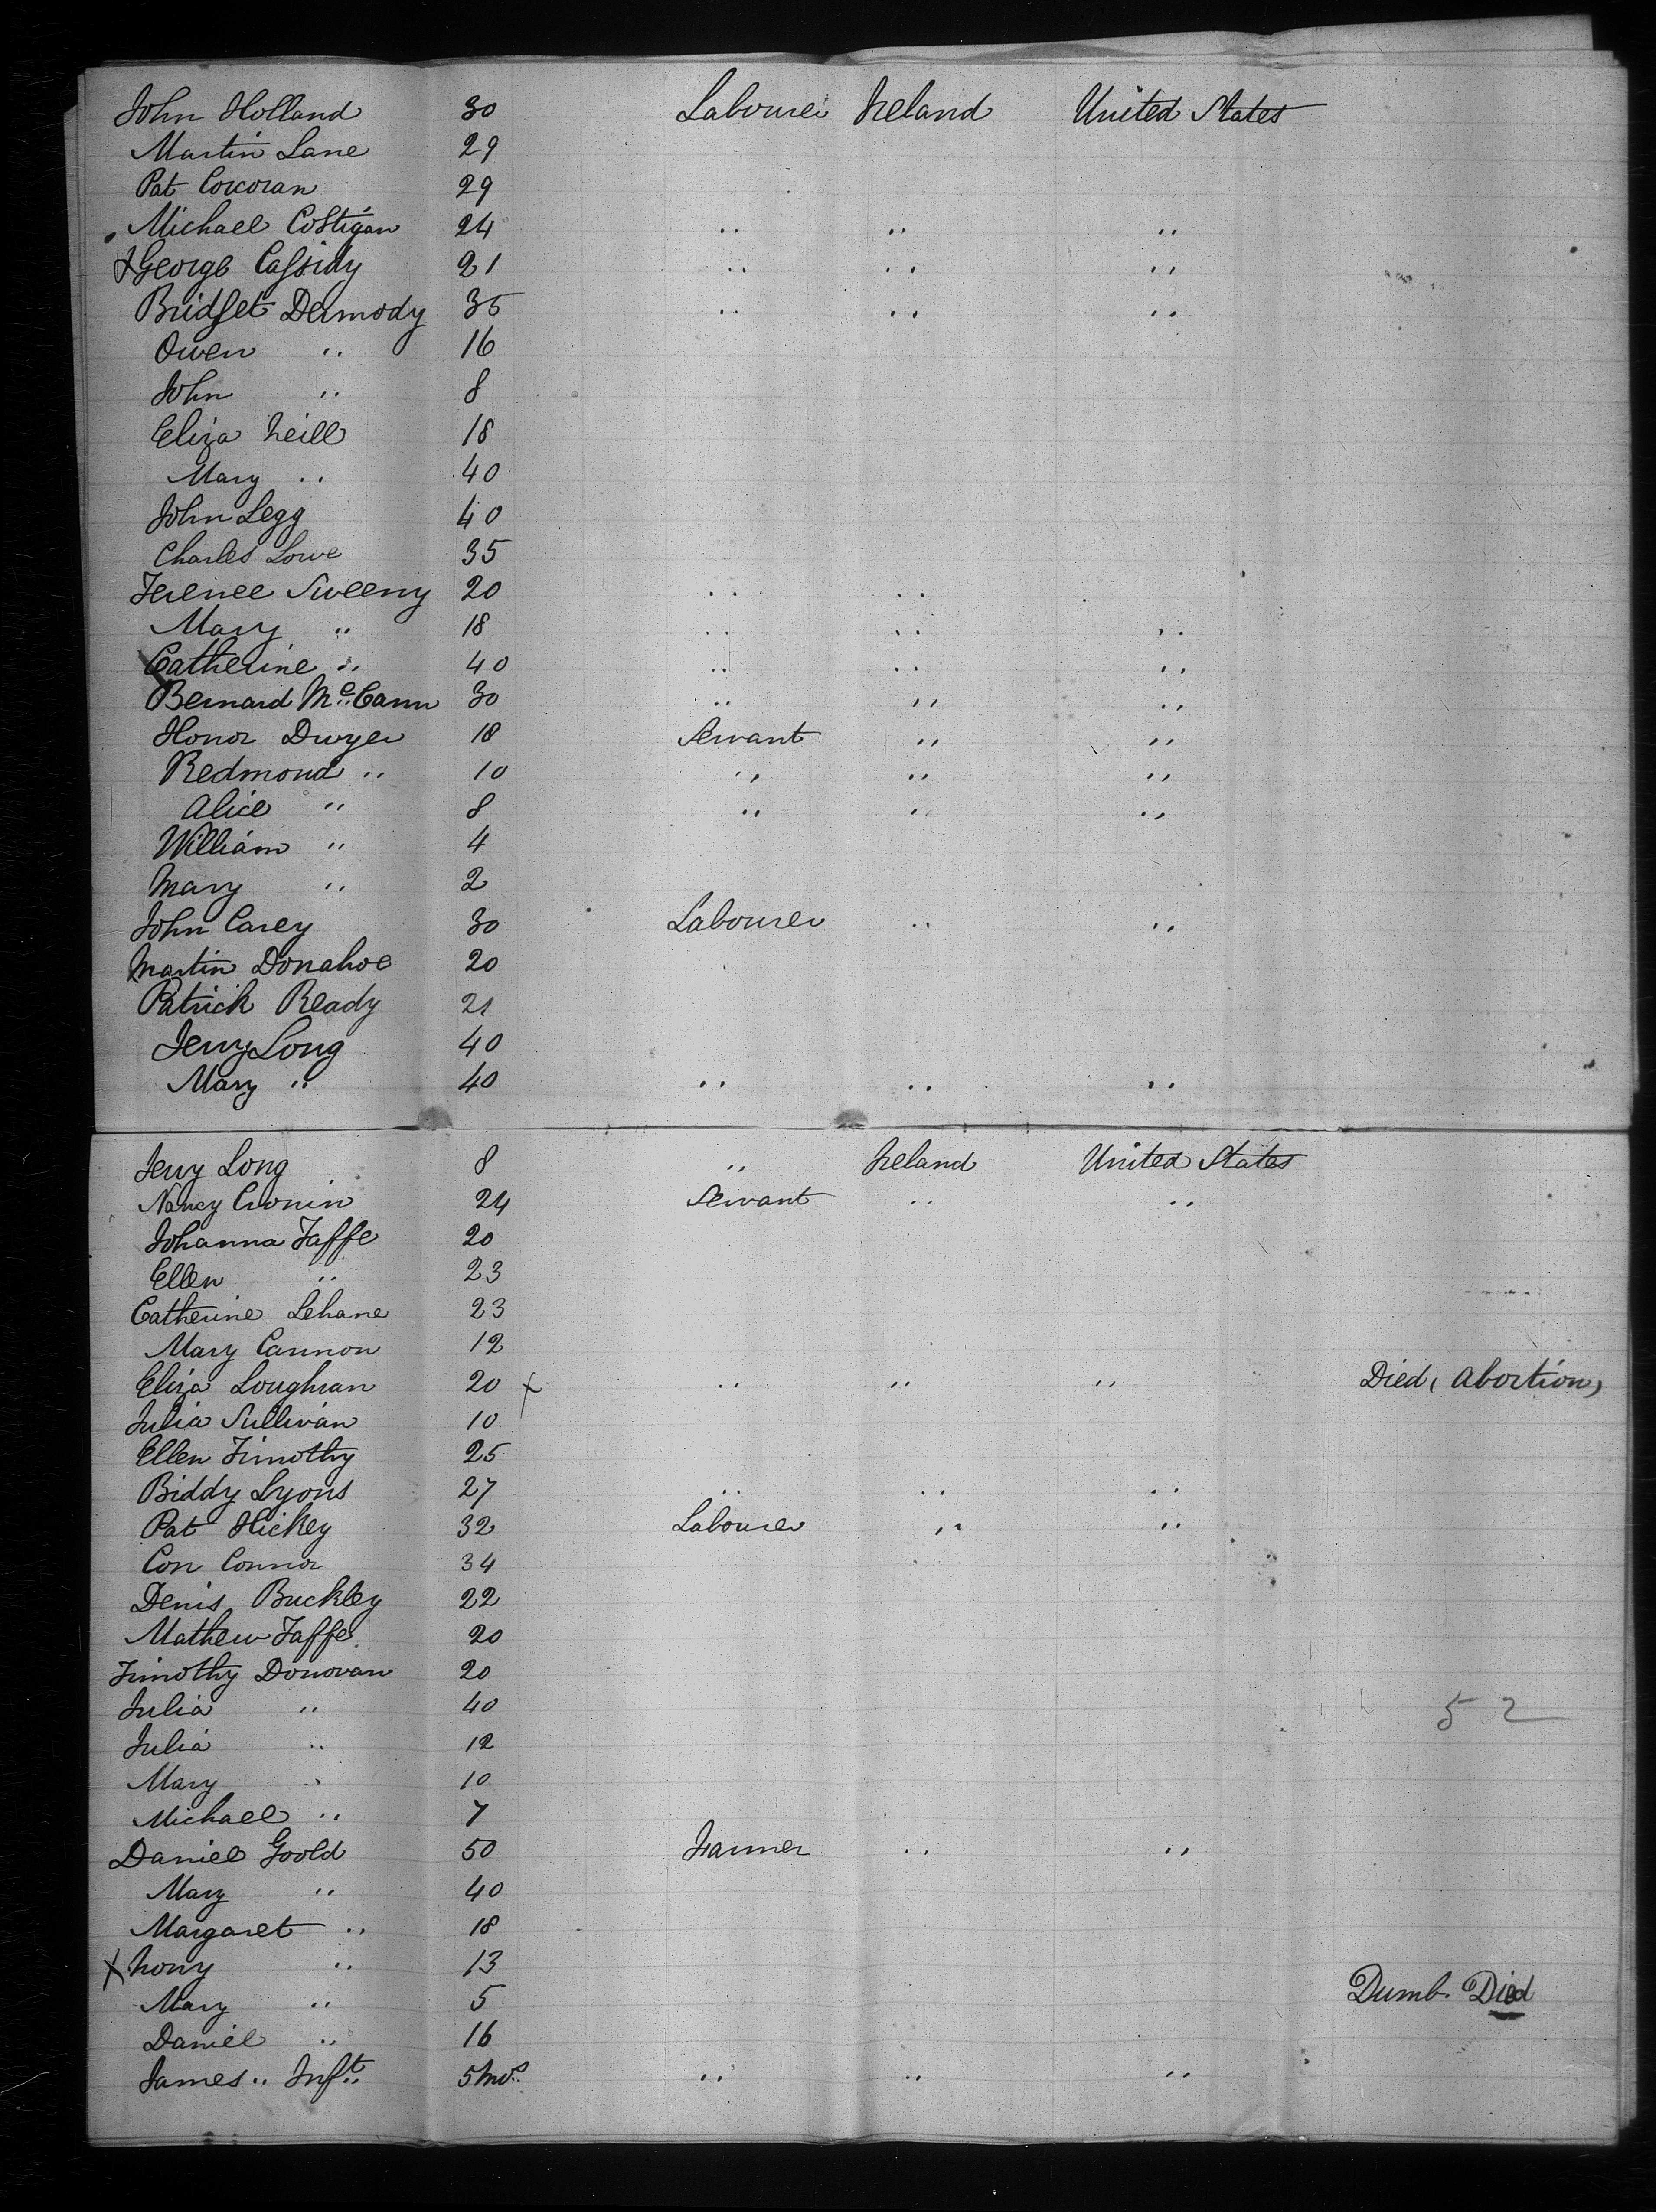 John Holland 30 Labourer Ireland United States
Martin Lane 29
Pat Corcoran 29
Michael Costigan 24 " " "
George Cassidy 21 " " "
Bridget Dermody 35 " " "
Owen " 16
John " 8
Eliza Neill 18
Mary " 40
John Legg 40
Charles Lowe 35
Terence Sweeny 20 " "
Mary " 18 " " "
Catherine " 40 " " "
Bernard McCann 30 " " "
Honor Dwyer 18 Servant " "
Redmond " 10 " " "
Alice " 8 " " "
William " 4
Mary " 2
John Carey 30 Labourer " "
Martin Donahoe 20
Patrick Ready 21
Jerry Long 40
Mary " 40 " " "
Jerry Long 8 " Ireland United States
Nancy Cronin 24 Servant " "
Johanna Taffe 20
Ellen " 23
Catherine Lehane 23
Mary Cannon 12
Eliza Loughran 20 x " " " Died, (Abortion)
Julia Sullivan 10
Ellen Timothy 25
Biddy Lyons 27 " " "
Pat Hickey 32 Labourer " "
Con Connor 34
Denis Buckley 22
Mathew Taffe 20
Timothy Donovan 20
Julia " 40 52
Julia " 12
Mary " 10
Michael " 7
Daniel Goold 50 Farmer " "
Mary " 40
Margaret " 18
x Nony " 13
Mary " 5 Dumb. Died
Daniel " 16
James " Inft. 5 Mos. " " "